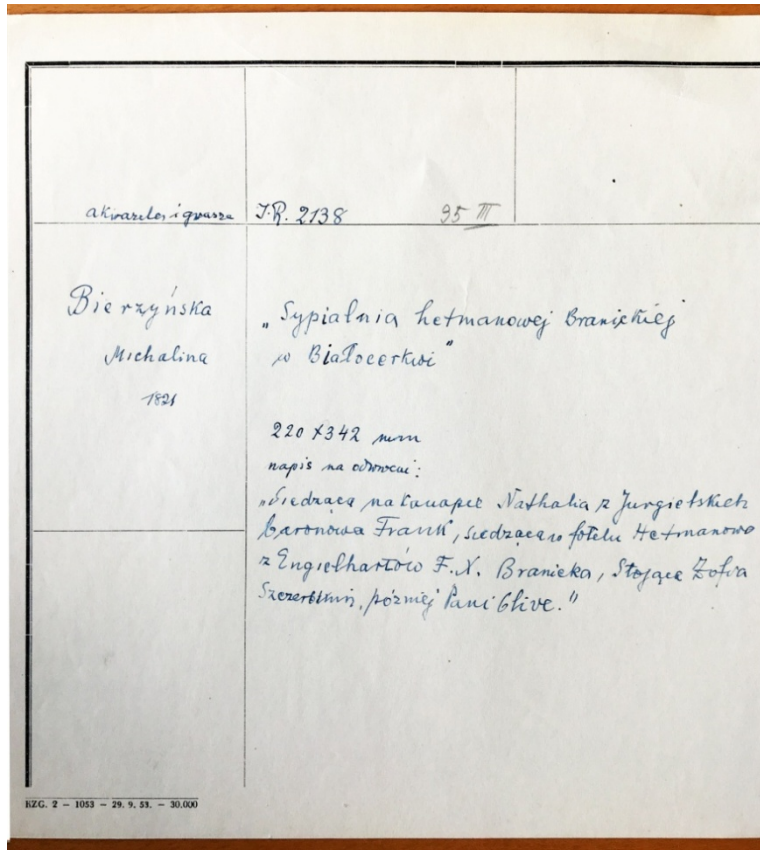 akwarela i gwasza
J.R. 2138 95 III
Bierzyńska
Michalina
1821
„Sypialnia hetmanowej Branickiej
w Białocerkwi"
220 x 342 mm
napis na odwrocie:
„Siedząca na kanapie Nathalia z Jurgielskich
baronowa Frank, siedząca w fotelu Hetmanowa
z Engielhartów F. X. Branicka, Stojąca Zofia
później Pani Clive."
KZG. 2 — 1053 — 29. 9. 53. — 30.000